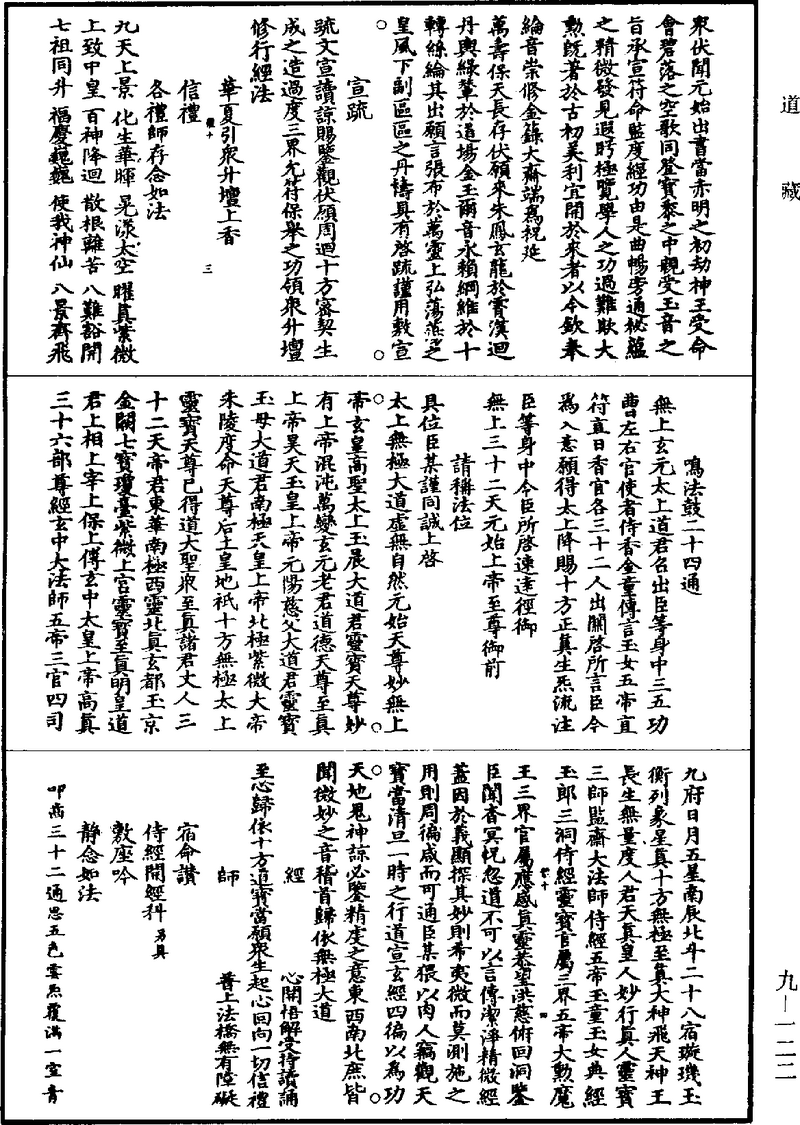 道藏
九—一二二
衆伏聞元始出書當赤明之初劫神王受命
會碧落之空歌同登寶黍之中親受玉音之
旨承宣符命監度經功由是曲暢旁通秘蘊
之精微發見遐眄極覽學人之功過難歟大
勲既著於古初美利宜開於來者以今欽奉
綸音崇修金籙大齋端為祝延
萬壽保天長存伏願來朱鳳玄龍於霄漢迴
丹輿綠輦於道場金玉爾音永賴綱維於十
轉絲綸其出願言張布於萬靈上弘蕩蕩之
皇風下副區區之丹禱具有啓疏謹用敷宣
宣疏
疏文宣讀諒賜鑒觀伏願周迴十方密契生
成之造過度三界允符保舉之功領衆升壇
修行經法
華夏引衆升壇上香
信禮
各禮師存念如法
九天上景 化生華暉 晃漾太空 曜真紫微
上致中皇 百神降迴 散根離苦 八難豁開
七祖同升 福慶巍巍 使我神仙 八景齊飛
鳴法鼓二十四通
無上玄元太上道君召出臣等身中三五功
曹左右官使者侍香金童傳言玉女五帝直
符直日香官各三十二人出關啓所言臣今
為入意願得太上降賜十方正真生炁流注
臣等身中令臣所啓速達徑御
無上三十二天元始上帝至尊御前
請稱法位
具位臣某謹同誠上啓
太上無極大道虛無自然元始天尊妙無上
帝玄皇高聖太上玉晨大道君靈寶天尊妙
有上帝混沌萬變玄元老君道德天尊至真
上帝昊天玉皇上帝元陽慈父大道君靈寶
玉母大道君南極天皇上帝北極紫微大帝
朱陵度命天尊后土皇地祇十方無極太上
靈寶天尊已得道大聖衆至真諸君丈人三
十二天帝君東華南極西靈北真玄都玉京
金闕七寶瓊臺紫微上宮靈寶至真明皇道
君上相上宰上保上傅玄中太皇上帝高真
三十六部尊經玄中大法師五帝三官四司
九府日月五星南辰北斗二十八宿璇璣玉
衡列象星真十方無極至真大神飛天神王
長生無量度人君天真皇人妙行真人靈寶
三師監齋大法師侍經五帝玉童玉女典經
玉郎三洞侍經靈寶官屬三界五帝大勲魔
王三界官屬應感真靈恭望洪慈俯回洞鑒
臣聞杳冥怳忽道不可以言傳潔淨精微經
蓋因於義顯探其妙則希夷微而莫測施之
用則周徧咸而可通臣某猥以肉人竊觀天
寶當清旦一時之行道宣玄經四徧以為功
天地鬼神諒必鑒精虔之意東西南北庶皆
聞微妙之音稽首歸依無極大道
經 心開悟解受持讀誦
至心歸依十方道寶當願衆生起心回向一切信禮
師 普上法橋無有障礙
宿命讚
侍經開經科 另具
敷座吟
靜念如法
叩齒三十二通思五色雲炁覆滿一室青